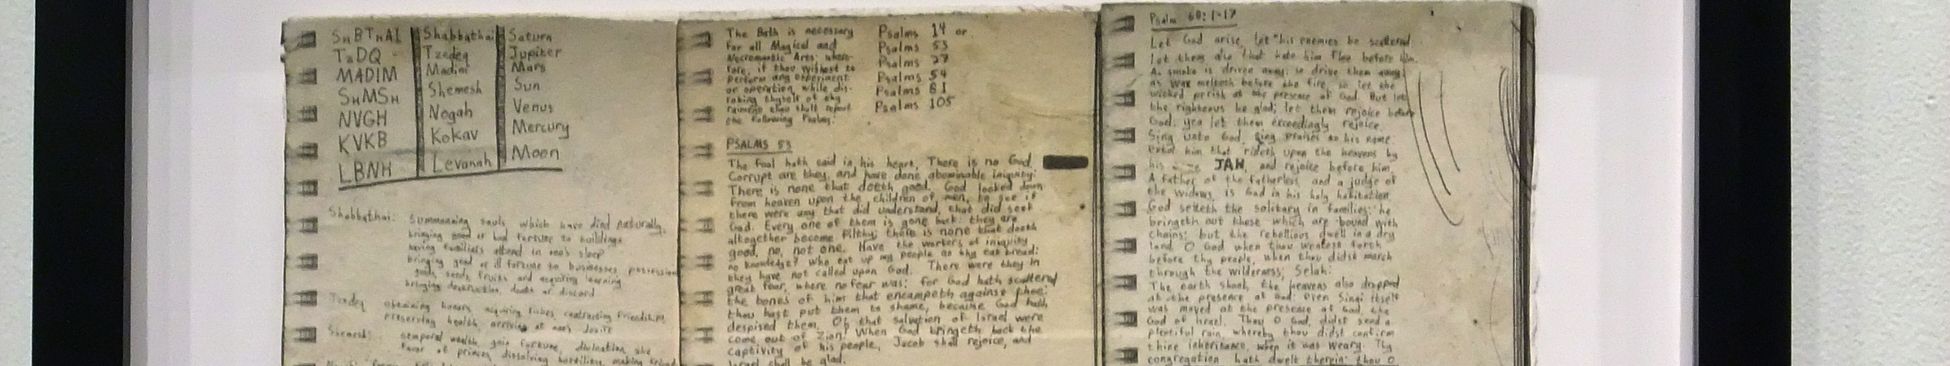 SHBTHAI Shabbathai Saturn
TZDQ Tzedeq Jupiter
MADIM Madim Mars
SHMSH Shemesh Sun
NVGH Nogah Venus
KVKB Kokav Mercury
LBNH Levanah Moon
Shabbathai: Summoning souls which have died naturally,
bringing good or bad fortune to buildings
having familiars attend in one's sleep
bringing good or ill fortune to businesses, possession
goods, seeds, fruits and acquiring learning
bringing destruction, death or discord
Tzedeq obtaining honors, acquiring riches, contracting friendships,
preserving health, arriving at one's desire
temporal wealth, gain fortune, divination, the
favor of princes, dissolving hostility, making friend
The Bath is necessary
for all Magical and
Necromantic Arts: where-
fore, if thou wishest to
perform any experiment
or operation, while dis-
robing thyself of thy
raiments thou shalt repeat
the following Psalms:
Psalms 14 or
Psalms 53
Psalms 27
Psalms 54
Psalms 81
Psalms 105
PSALMS 53
The fool hath said in his heart, There is no God,
Corrupt are they, and have done abominable iniquity:
There is none that doeth good. God looked down
from heaven upon the children of men, to see if
there were any that did understand, that did seek
God. Every one of them is gone back: they are
altogether become filthy; there is none that doeth
good, no, not one. Have the workers of iniquity
no knowledge? Who eat up my people as they eat bread:
they have not called upon God. There were they in
great fear, where no fear was: for God hath scattered
the bones of him that encampeth against thee:
thou hast put them to shame, because God hath
despised them. Oh that salvation of Israel were
come out of Zion! When God bringeth back the
captivity of his people, Jacob shall rejoice, and
Israel shall be glad.
Psalm 68:1-17
Let God arise, let his enemies be scattered
let them also that hate him flee before him.
As smoke is driven away, so drive them away:
as wax melteth before the fire, so let the
wicked perish at the presence of God. But let
the righteous be glad; let them rejoice before
God: yea let them exceedingly rejoice.
Sing unto God, sing praises to his name:
extol him that rideth upon the heavens by
his JAH, and rejoice before him.
A father of the fatherless, and a judge of
the widows, is God in his holy habitation.
God setteth the solitary in families: he
bringeth out those which are bound with
chains: but the rebellious dwell in a dry
land. O God when thou wentest forth
before thy people, when thou didst march
through the wilderness; Selah:
The earth shook, the heavens also dropped
at the presence of God: even Sinai itself
was moved at the presence of God, the
God of Israel. Thou O God, didst send a
plentiful rain, whereby thou didst confirm
thine inheritance, when it was weary. Thy
congregation hath dwelt therein: thou O